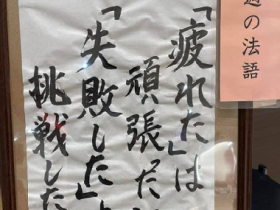 の法語
「疲れた」は
頑張った
「失敗した」
挑戦した